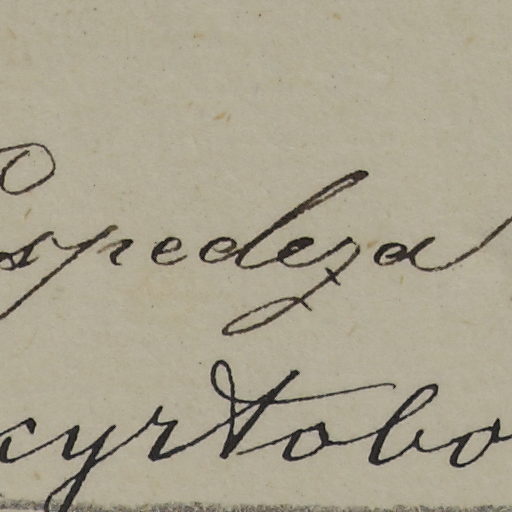 espedeza
cyrtobo